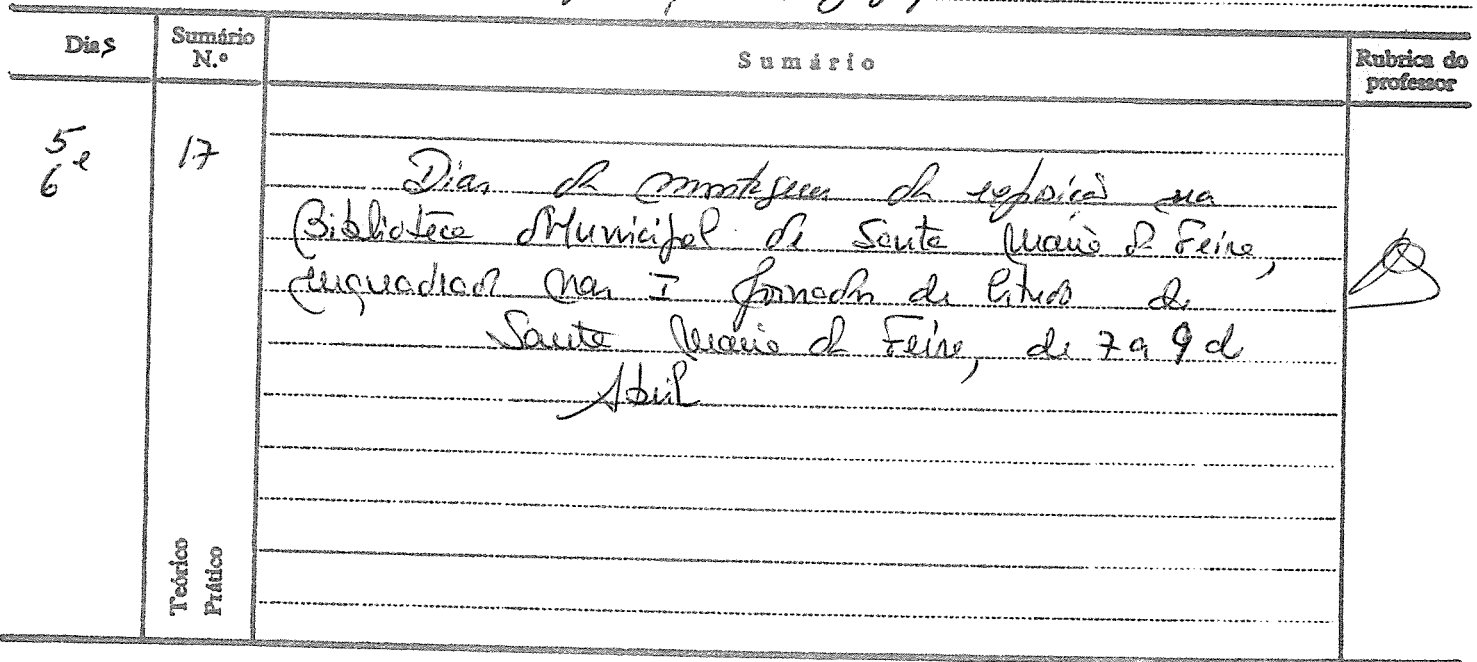 Dias Sumário N.º Sumário Rubrica do professor
5 e 6 17
Dias da montagem da exposição na
Biblioteca Municipal de Santa Maria da Feira,
enquadrad nas I Jornadas de Estudo de
Santa Maria da Feira, de 7 a 9 de
Abril
Teórico
Prático